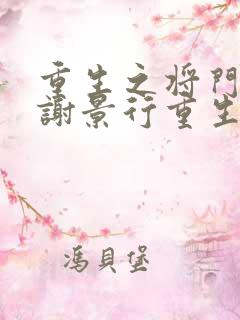 重生之将門
謝景行重生
馮貝堡